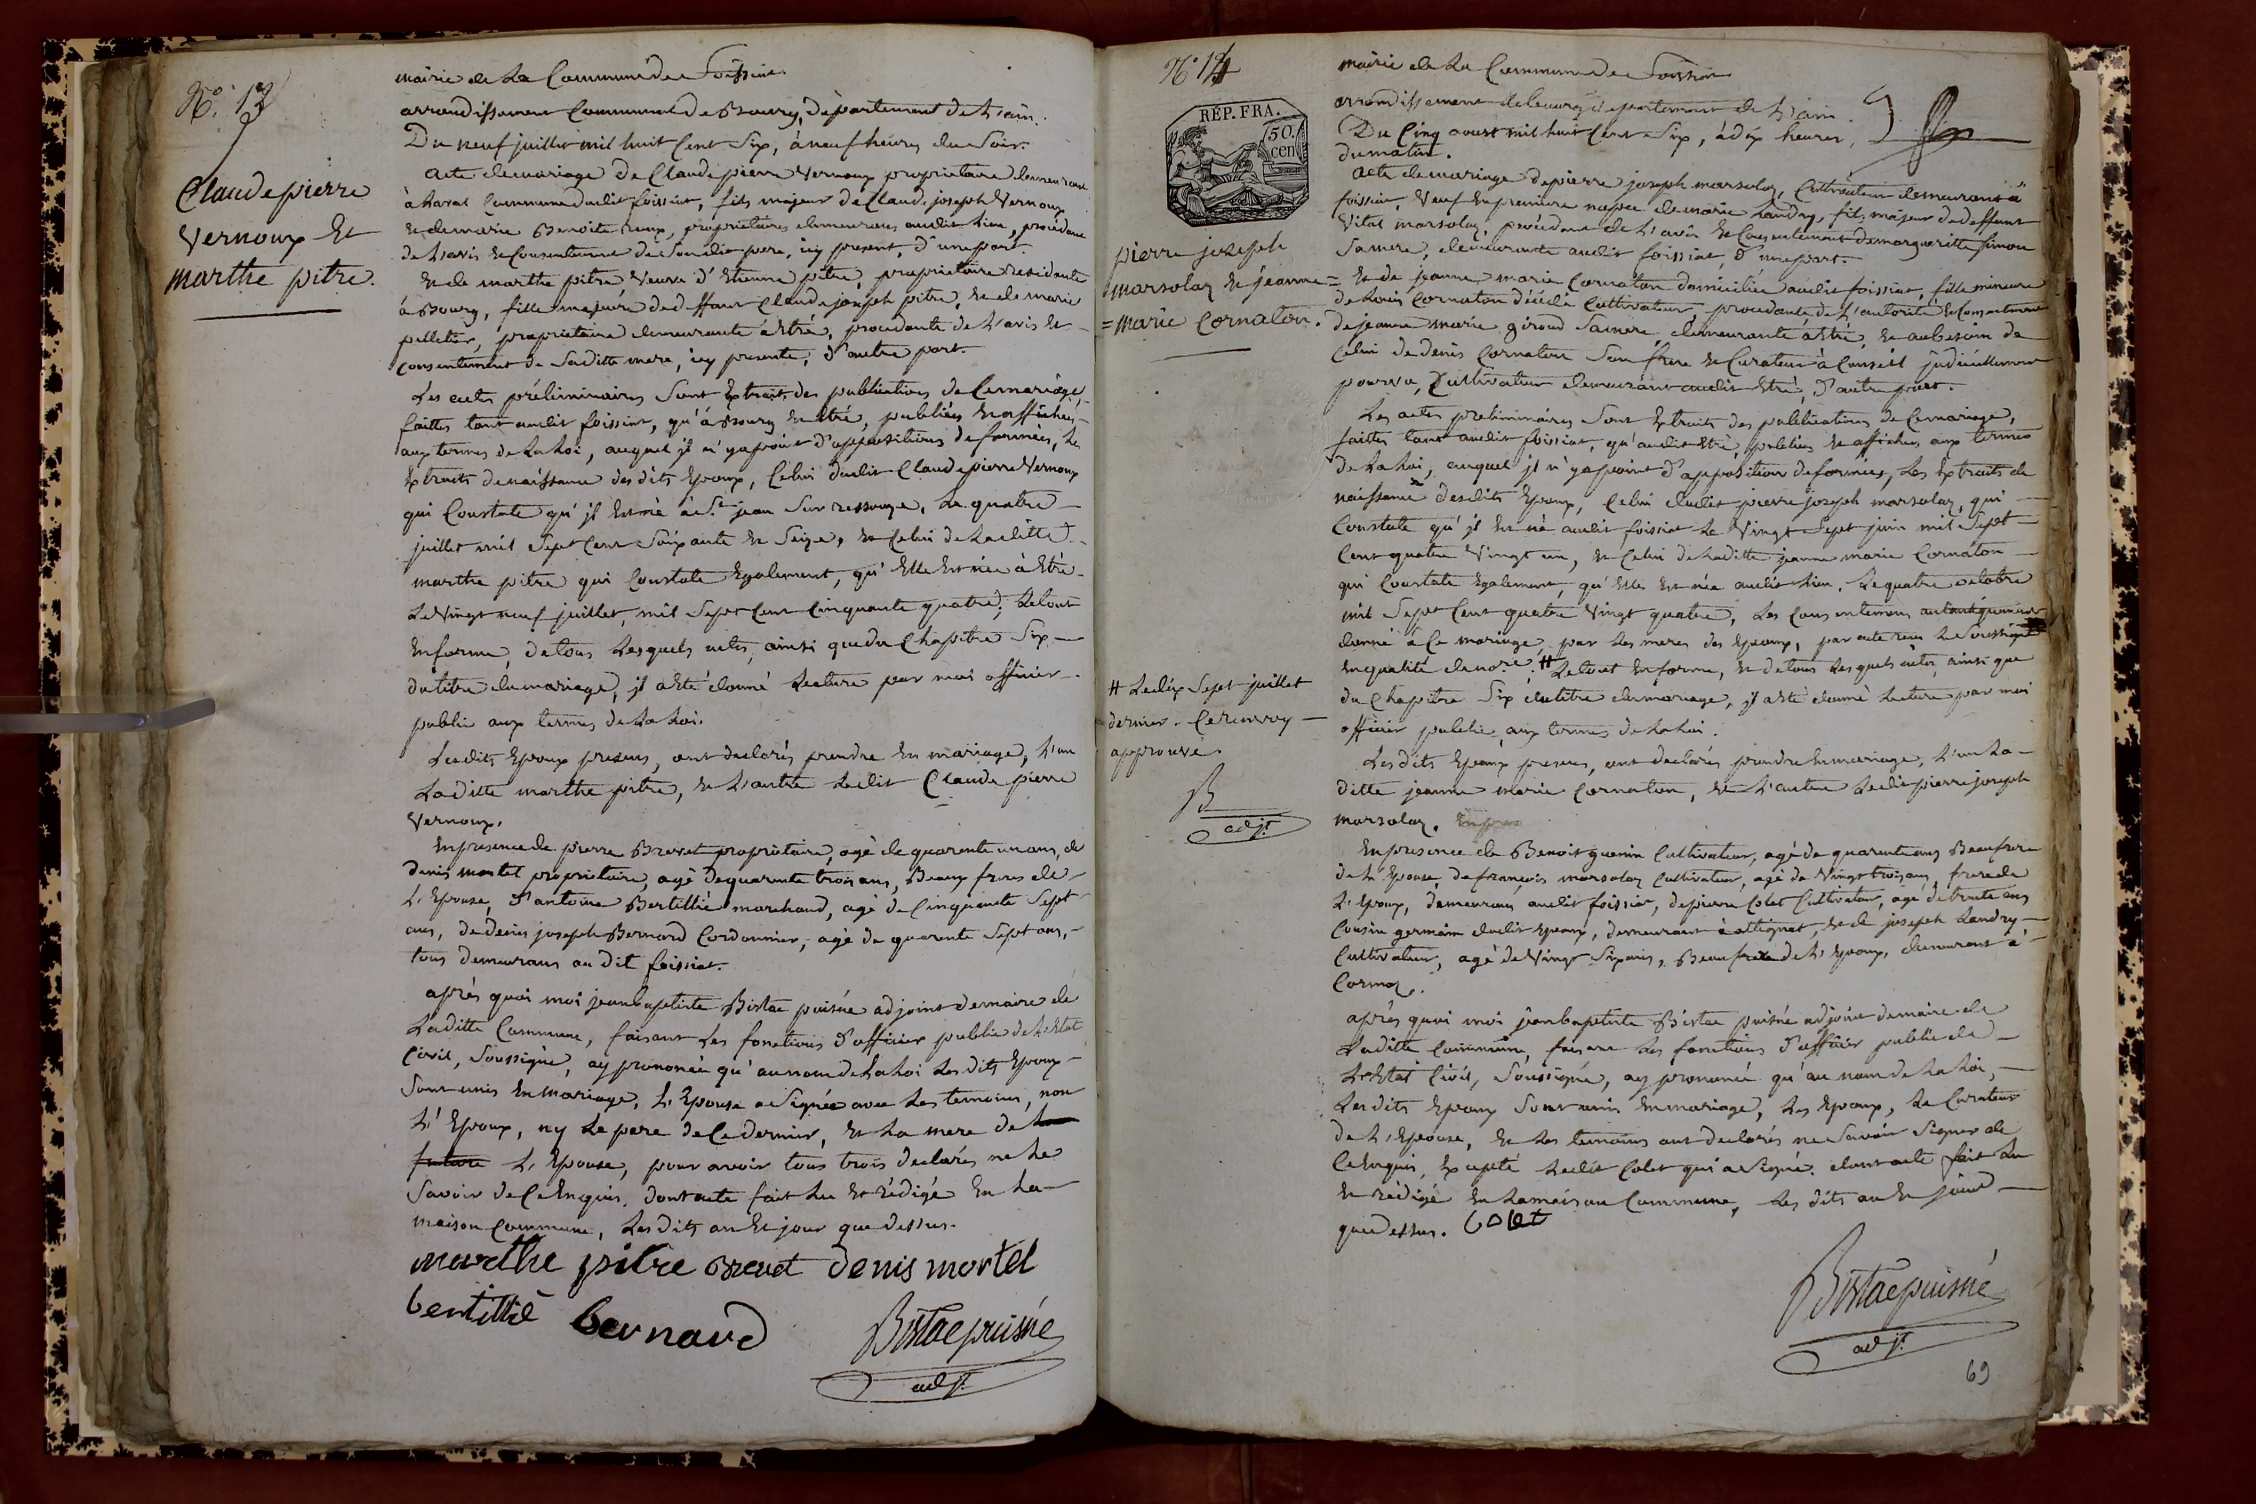 N°. 13
Claude pierre
Vernoux Et
marthe pitre.
mairie de La Commune de Foissiat
arrondissement Communal de Bourg, département de L'ain.
Du neuf juillet mil huit Cent Six, à neuf heures du Soir.
acte de mariage de Claude pierre Vernoux propriétaire demeurant
à Commune dudit foissiat, fils majeur de Claude joseph Vernoux
Et de marie Benoite roux, propriétaires demeurans audit Lieu, procédant
de L'avis Et Consentement de Son dit pere, icy present, d'une part.
Et de marthe pitre Veuve d'Etienne pitre, propriétaire residente
à Bourg, fille majeure de deffunt Claude joseph pitre, Et de marie
pelletier, propriétaire demeurante à Etré, procedante de L'avis Et
Consentement de Saditte mere, icy presente, d'autre part.
Les actes préliminaires Sont Extraits des publications de Ce mariage,
faittes tant audit foissiat, qu'à Bourg Et Etré, publiées Et affichées
aux termes de La Loi, auquel jl n'y a point d'oppositions de formées, Les
Extraits de naissance desdits Epoux, Celui dudit Claude pierre Vernoux
qui Constate qu'jl Est né à St. jean Sur ressouze, Le quatre
juillet mil Sept Cent Soixante Et Seize, Et Celui de Laditte
marthe pitre qui Constate Egalement, qu'Elle Est née à Etré
Le Vingt neuf juillet, mil Sept Cent Cinquante quatre; Le tout
En forme, de tous Lesquels actes, ainsi que du Chapitre Six
du titre du mariage, jl a Eté donné Lecture par moi officier
public aux termes de La Loi.
Lesdits Epoux presens, ont declarés prendre En mariage, L'un
Laditte marthe pitre, Et L'autre Ledit Claude pierre
Vernoux.
En presence de pierre Brevet propriétaire, agé de quarante un ans, de
denis mortel propriétaire, agé de quarante trois ans, Beaux freres de
L'Epouse, d'antoine Bertillié marchand, agé de Cinquante Sept
ans, de denis joseph Bernard Cordonnier, agé de quarante Sept ans,
tous demeurans au dit foissiat.
après quoi moi jean baptiste Bistac puisné adjoint de maire de
Laditte Commune, faisant Les fonctions d'officier public de L'Etat
Civil, Soussigné, ay prononcé qu'au nom de La Loi Les dits Epoux
Sont unis En mariage, L'Epouse a Signée avec Les temoins, non
L'Epoux, ny Le pere de Ce dernier, Et La mere de La
future L'Epouse, pour avoir tous trois declarés ne Le
Savoir de Ce Enquis. dont acte fait Lu Et rédigé En La
maison Commune, Les dits an Et jour que dessus.
marthe pitre Brevet denis mortel
bertillié bernard
Bistac puisné
adjt.
N° 14
RÉP. FRA.
50.
cen
pierre joseph
marsolaz Et jeanne =
= marie Cornaton.
# Le dix Sept juillet
dernier. Ce renvoy
approuvé.
B
adjt.
mairie de La Commune de Foissiat
arrondissement de bourg département de L'ain.
Du Cinq aoust mil huit Cent Six, à dix heures
du matin.
acte de mariage de pierre joseph marsolaz, Cultivateur demeurant à
foissiat, Veuf En premiere nopce de marie Landry, fils majeur de deffunt
Vital marsolaz, procédant de L'avis Et Consentement de margueritte Simon
Sa mere, demeurante audit foissiat, d'une part.
Et de jeanne marie Cornaton domiciliée audit foissiat, fille mineure
de Louis Cornaton décédé Cultivateur, procedante de L'autorité Et Consentement
de jeanne marie giroud Sa mere, demeurante à Etré, Et au besoin de
Celui de denis Cornaton Son frere Et Curateur à Conseil judiciellement
pourvu, Cultivateur demeurant audit Etré, d'autre part.
Les actes preliminaires Sont Extraits des publications de Ce mariage,
faittes tant audit foissiat, qu'audit Etré, publiées Et affichées aux termes
de La Loi, auquel jl n'y a point d'opposition de formées, Les Extraits de
naissance desdits Epoux, Celui dudit pierre joseph marsolaz, qui
Constate qu'jl Est né audit foissiat Le Vingt Sept juin mil Sept
Cent quatre Vingt un, Et Celui de Laditte jeanne marie Cornaton
qui Constate Egalement, qu'Elle Est née audit Lieu, Le quatre octobre
mil Sept Cent quatre Vingt quatre, Les Consentemens autentiquement
donné à Ce mariage, par Les meres des Epoux, par acte reçu Le Soussigné
En qualité de nore. # Le tout En forme, Et de tous Lesquels actes, ainsi que
du Chapitre Six du titre du mariage, jl a Eté donné Lecture par moi
officier public, aux termes de La Loi.
Les dits Epoux presens, ont declarés prendre En mariage, L'un La
ditte jeanne marie Cornaton, Et L'autre Ledit pierre joseph
marsolaz.
En presence de Benoit guerin Cultivateur, agé de quarante ans Beau frere
de L'Epouse, de françois marsolaz Cultivateur, agé de Vingt trois ans, frere de
L'Epoux, demeurans audit foissiat, de pierre Colet Cultivateur, agé de trente ans
Cousin germain dudit Epoux, demeurant à attignat, Et de joseph Landry
Cultivateur, agé de Vingt Six ans, Beau frere de L'Epoux, demeurant à
Cormoz.
après quoi moi jean baptiste Bistac puisné adjoint de maire de
Laditte Commune, faisant Les fonctions d'officier public de
L'Etat Civil, Soussigné, ay prononcé qu'au nom de La Loi,
Les dits Epoux Sont unis En mariage, Les Epoux, Le Curateur
de L'Epouse, Et Les temoins ont declarés ne Savoir Signer de
Ce Enquis, Excepté Ledit Colet qui a Signé. dont acte fait Lu
Et rédigé En La maison Commune, Les dits an Et jour
que dessus. Colet
Bistac puisné
adjt.
69